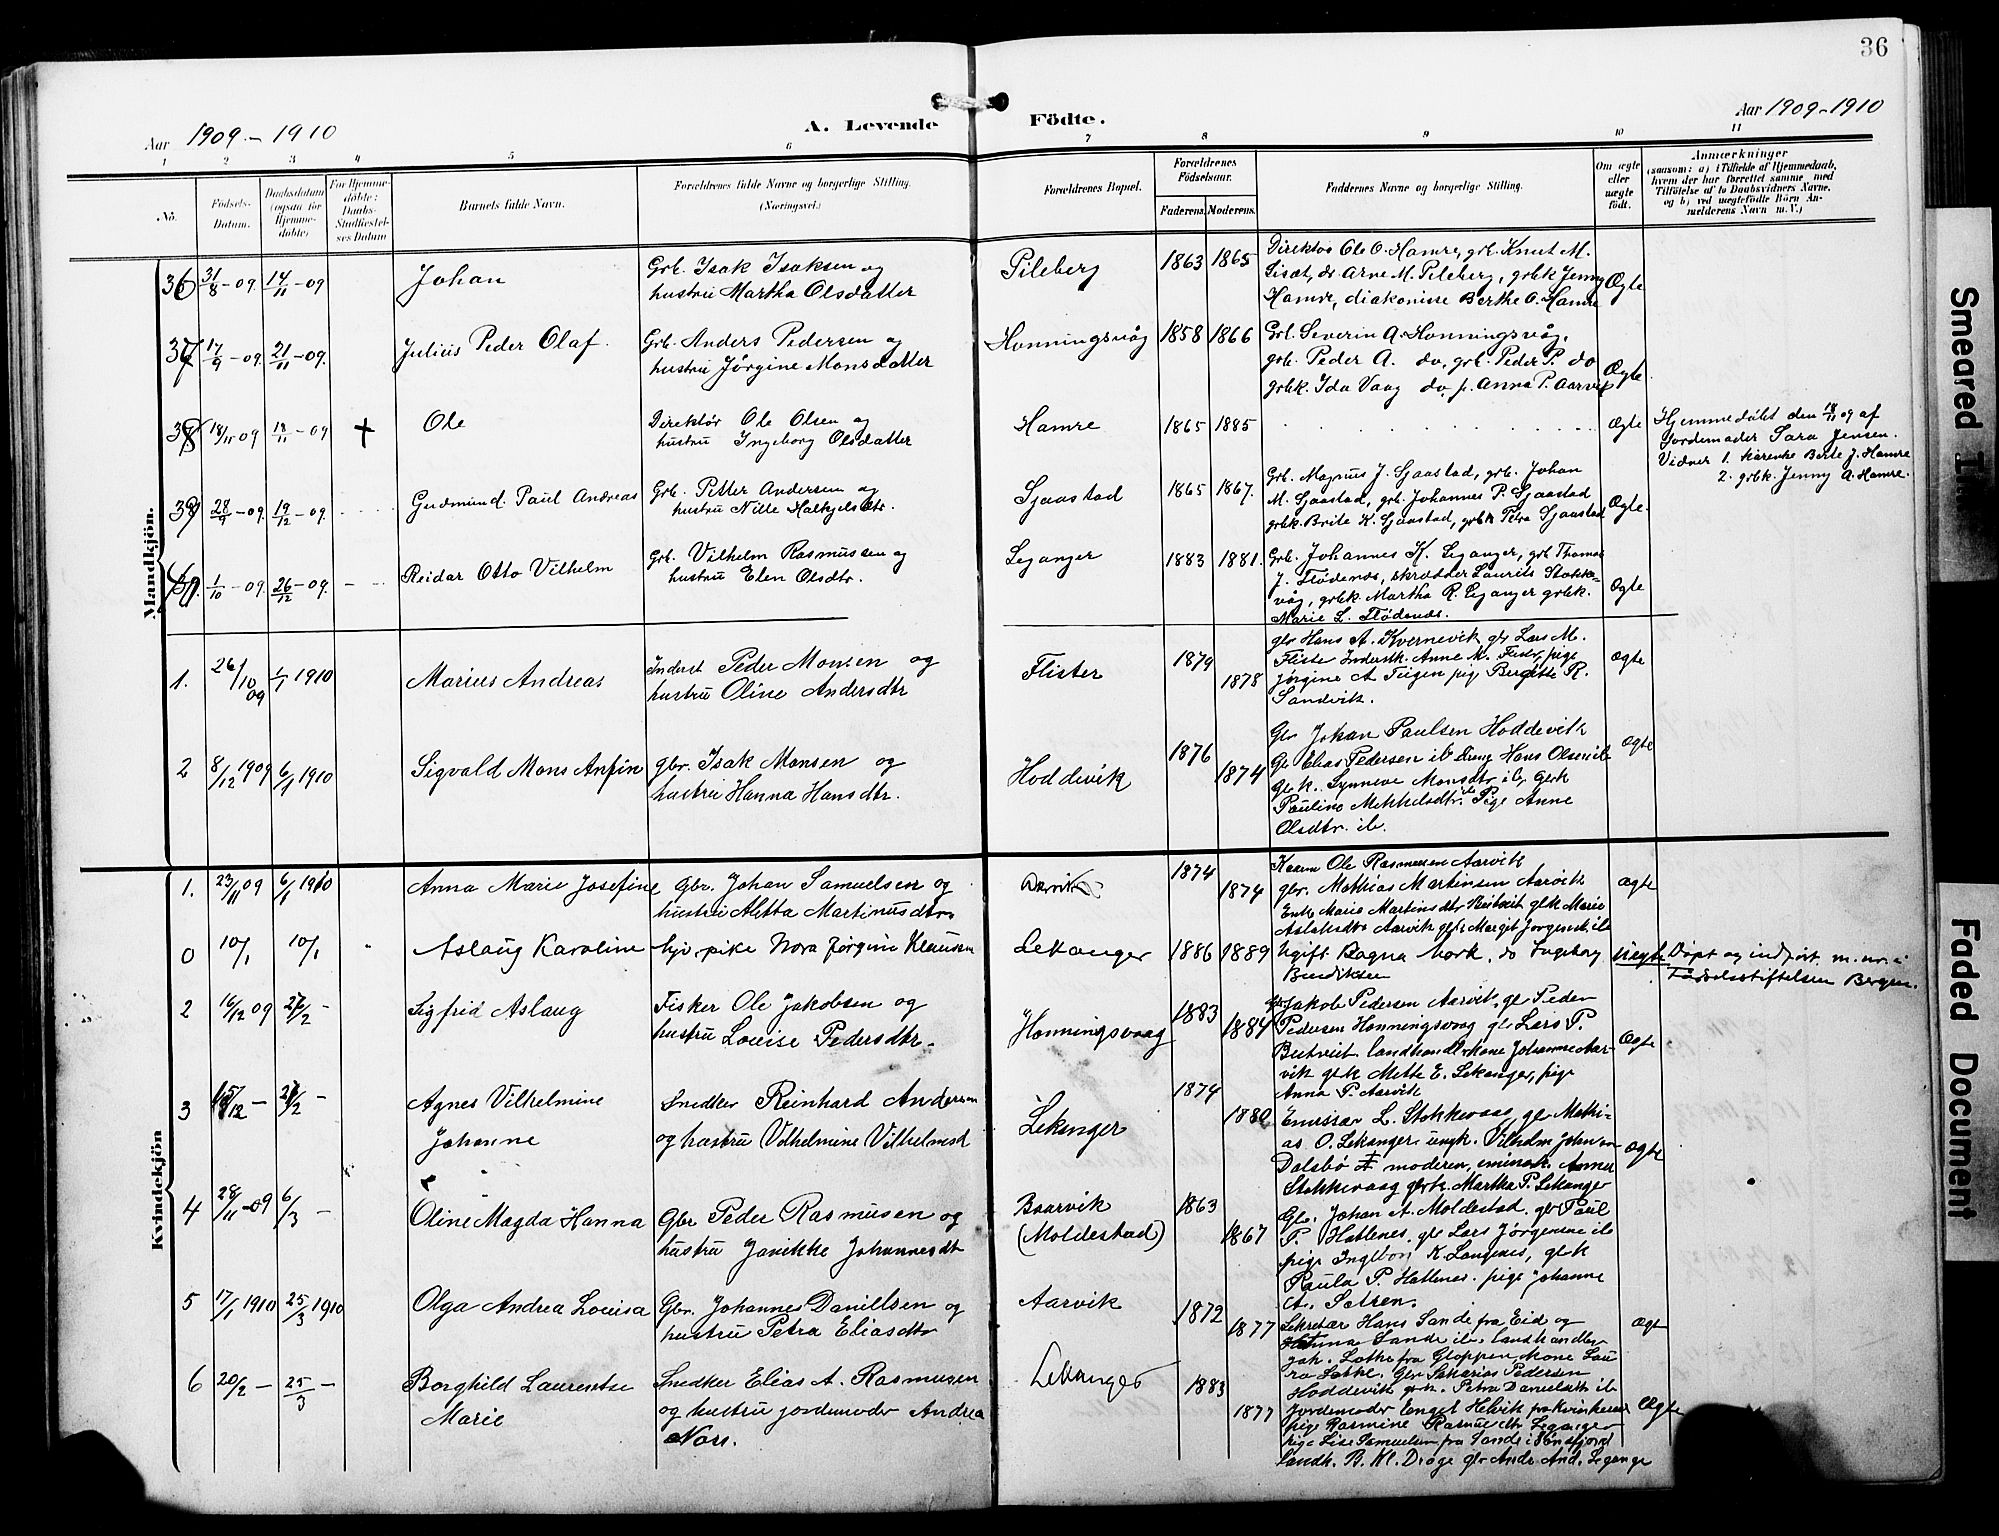 36
Aar 1909 - 1910
A. Levende Födte.
Aar 1909 - 1910
1 2 3 4 5 6 7 8 9 10 11
No.
Födsels-Datum.
Daabsdatum (ogsaa for Hjemmedöbte)
For Hjemmedöbte: Daabs-Stadfæstelses Datum
Barnets fulde Navn.
Forældrenes fulde Navne og borgerlige Stilling.
(Næringsvei.)
Forældrenes Bopæl.
Forældrenes Födselsaar.
Faderens.
Moderens.
Faddernes Navne og borgerlige Stilling.
Om ægte eller uægte födt.
Anmærkninger
(saasom: a) i Tilfælde af Hjemmedaab,
hvem der har forrettet samme med
Tilföielse af to Daabsvidners Navne,
og b) ved uægtefödte Börn An-
melderens Navn m. V.)
Mandkjön.
36 31/8 - 09. 14/11 - 09 Johan Grb. Isak Isaksen og
hustru Martha Olsdatter
Pileberg 1863 1865 Direktør Ole O. Hamre, grb. Knut M.
Liset, do Arne M. Pileberg, grbk Jenny
Hamre, diakonisse Berthe O. Hamre Ægte
37 17/9 - 09. 21/11 - 09. Julius Peder Olaf. Grb. Anders Pedersen og
hustru Jørgine Monsdatter
Honningsvåg 1858 1866 Grb. Severin A. Honningsvåg,
grb. Peder A. do, grb. Peder P. do
grbk. Ida Vaag do, p. Anna P. Aarvik Ægte
38 18/11 09 18/11 - 09 + Ole Direktør Ole Olsen og
hustru Ingeborg Olsdatter
Hamre 1865 1885 Ægte Hjemmedøbt den 18/11 09 af
Jordemoder Sara Jensen.
Vidner 1. Berte J. Hamre
2. grbk. Jenny A. Hamre.
39 28/9 - 09. 19/12 - 09. Gudmund Paul Andreas Grb. Petter Andersen og
hustru Nille
Sjaastad 1865 1867. Grb. Magnus J. Sjaastad, grb. Johan
M. Sjaastad, grb. Johannes P. Sjaastad
grbk. Brite K. Sjaastad, grbk Petra Sjaastad Ægte.
40. 1/10 - 09. 26/12 - 09. Reidar Otto Vilhelm Grb. Vilhelm Rasmussen og
hustru Elen Olsdtr.
Leganger 1883 1881. Grb. Johannes K. Leganger, grb Thomas
J. Flødenæs, skrædder Laurits Stokke-
våg, grbk. Martha R. Leganger grbk.
Marie L. Flødenæs. Ægte
1. 26/10 09 1/1 1910 Marius Andreas Inderst Peder Monsen og
hustru Oline Andersdtr
Flister 1879 1878 gbr Hans A. Kvernevik gbr Lars M.
Flister Inderstk. Anne M. Flister, pige
Jørgine A Teigen pige Bergitte R.
Sandvik. Ægte
2 8/12 1909 6/1 1910 Sigvald Mons Anfin gbr. Isak Monsen og
hustru Hanna Hansdtr.
Hoddevik 1876 1874 Gbr Johan Paulsen Hoddevik
Gbr Elias Pedersen ib Hans Olsen ib
gbrk. Synneve Monsdtr ib, gbrk
Pauline Mekkelsdtr. ib Pige Anne
Olsdtr. ib. Ægte
Kvindekjön
1. 23/11 09 6/1 1910 Anna Marie Josefine Gbr. Johan Samuelsen og
hustru Aletta Martinusdtr
Aarvik 1874 1874 Ole Rasmussen Aarvik
gbr. Mathias Martinsen Aarvik
Enke Marie Martinsdtr gbk Marie
Aarvik gbk Margit ib Ægte
0 10/1 10/1 " Aslaug Karoline hjv. pike Nora Jørgine Klausen
Lekanger 1886 1889 Ugift Ragna Mork, do Ingeborg
Bendiksen Uegte Døpt og indført m. nr. i
Fødselsstiftelsen Bergen.
2 16/12 09 27/2 - Sigfrid Aslaug Fisker Ole Jakobsen og
hustru Louise Pedersdtr.
Honningsvaag 1883 1884 gbr Jakob Pedersen Aarvik, gbr Peder
Pedersen Honningsvaag gbr Lars P.
landhandlerkone Johanne Aar-
vik gbrk Mette E. Lekanger, pige
Anna P. Aarvik Ægte
3 15/12 - 27/2 - Agnes Vilhelmine
Johanne
Snedker Reinhard Andersen
og hustru Vilhelmine Vilhelmsd
Lekanger 1874 1880 Emissær L. Stokkevaag, gbr Mathi-
as O. Lekanger, ungk. Vilhelm Johnsen
Dalsbø moderen, Anna
Stokkevaag gbrk. Martha P. Lekanger Ægte
4 28/11 - 09 6/3 - Oline Magda Hanna Gbr Peder Rasmusen og
hustru Janikke Johannesdt
Baarvik
(Moldestad)
1863 1867 Gbr. Johan A. Moldestad, gbr Paul
P. Hattenes, gbr Lars Jørgensen ib
pige Ingeborg K. Langenes, gbrk
Paula P. Hattenes. pige Johanne
A. Sætren.
5 17/1 1910 25/3 1910 Olga Andrea Lovisa Gbr. Johannes Daniilsen og
hustru Petra Eliasdtr
Aarvik 1872 1877 Sekretær Hans Sande fra Eid og
Sande ib. landhandler
Lothe fra Gloppen, kone Lau
ra Lothe. Gbr Sakarias Pedersen
Hoddevik grk. Petra Danielsdtr ib Ægt
6 20/2 - 25/3 - Borghild Laurentse
Marie
Snedker Elias A. Rasmusen
og hustru jordemoder Andrea
Nors.
Lekanger 1883 1877 Jordemoder Engel Helvik fra
pige Rasmine Rasmusdtr Leganger
pige Lise Samuelsen fra Sande i
landh. B. Kl. Drage gbr And. Leganger Ægte
Smeared
Faded Document